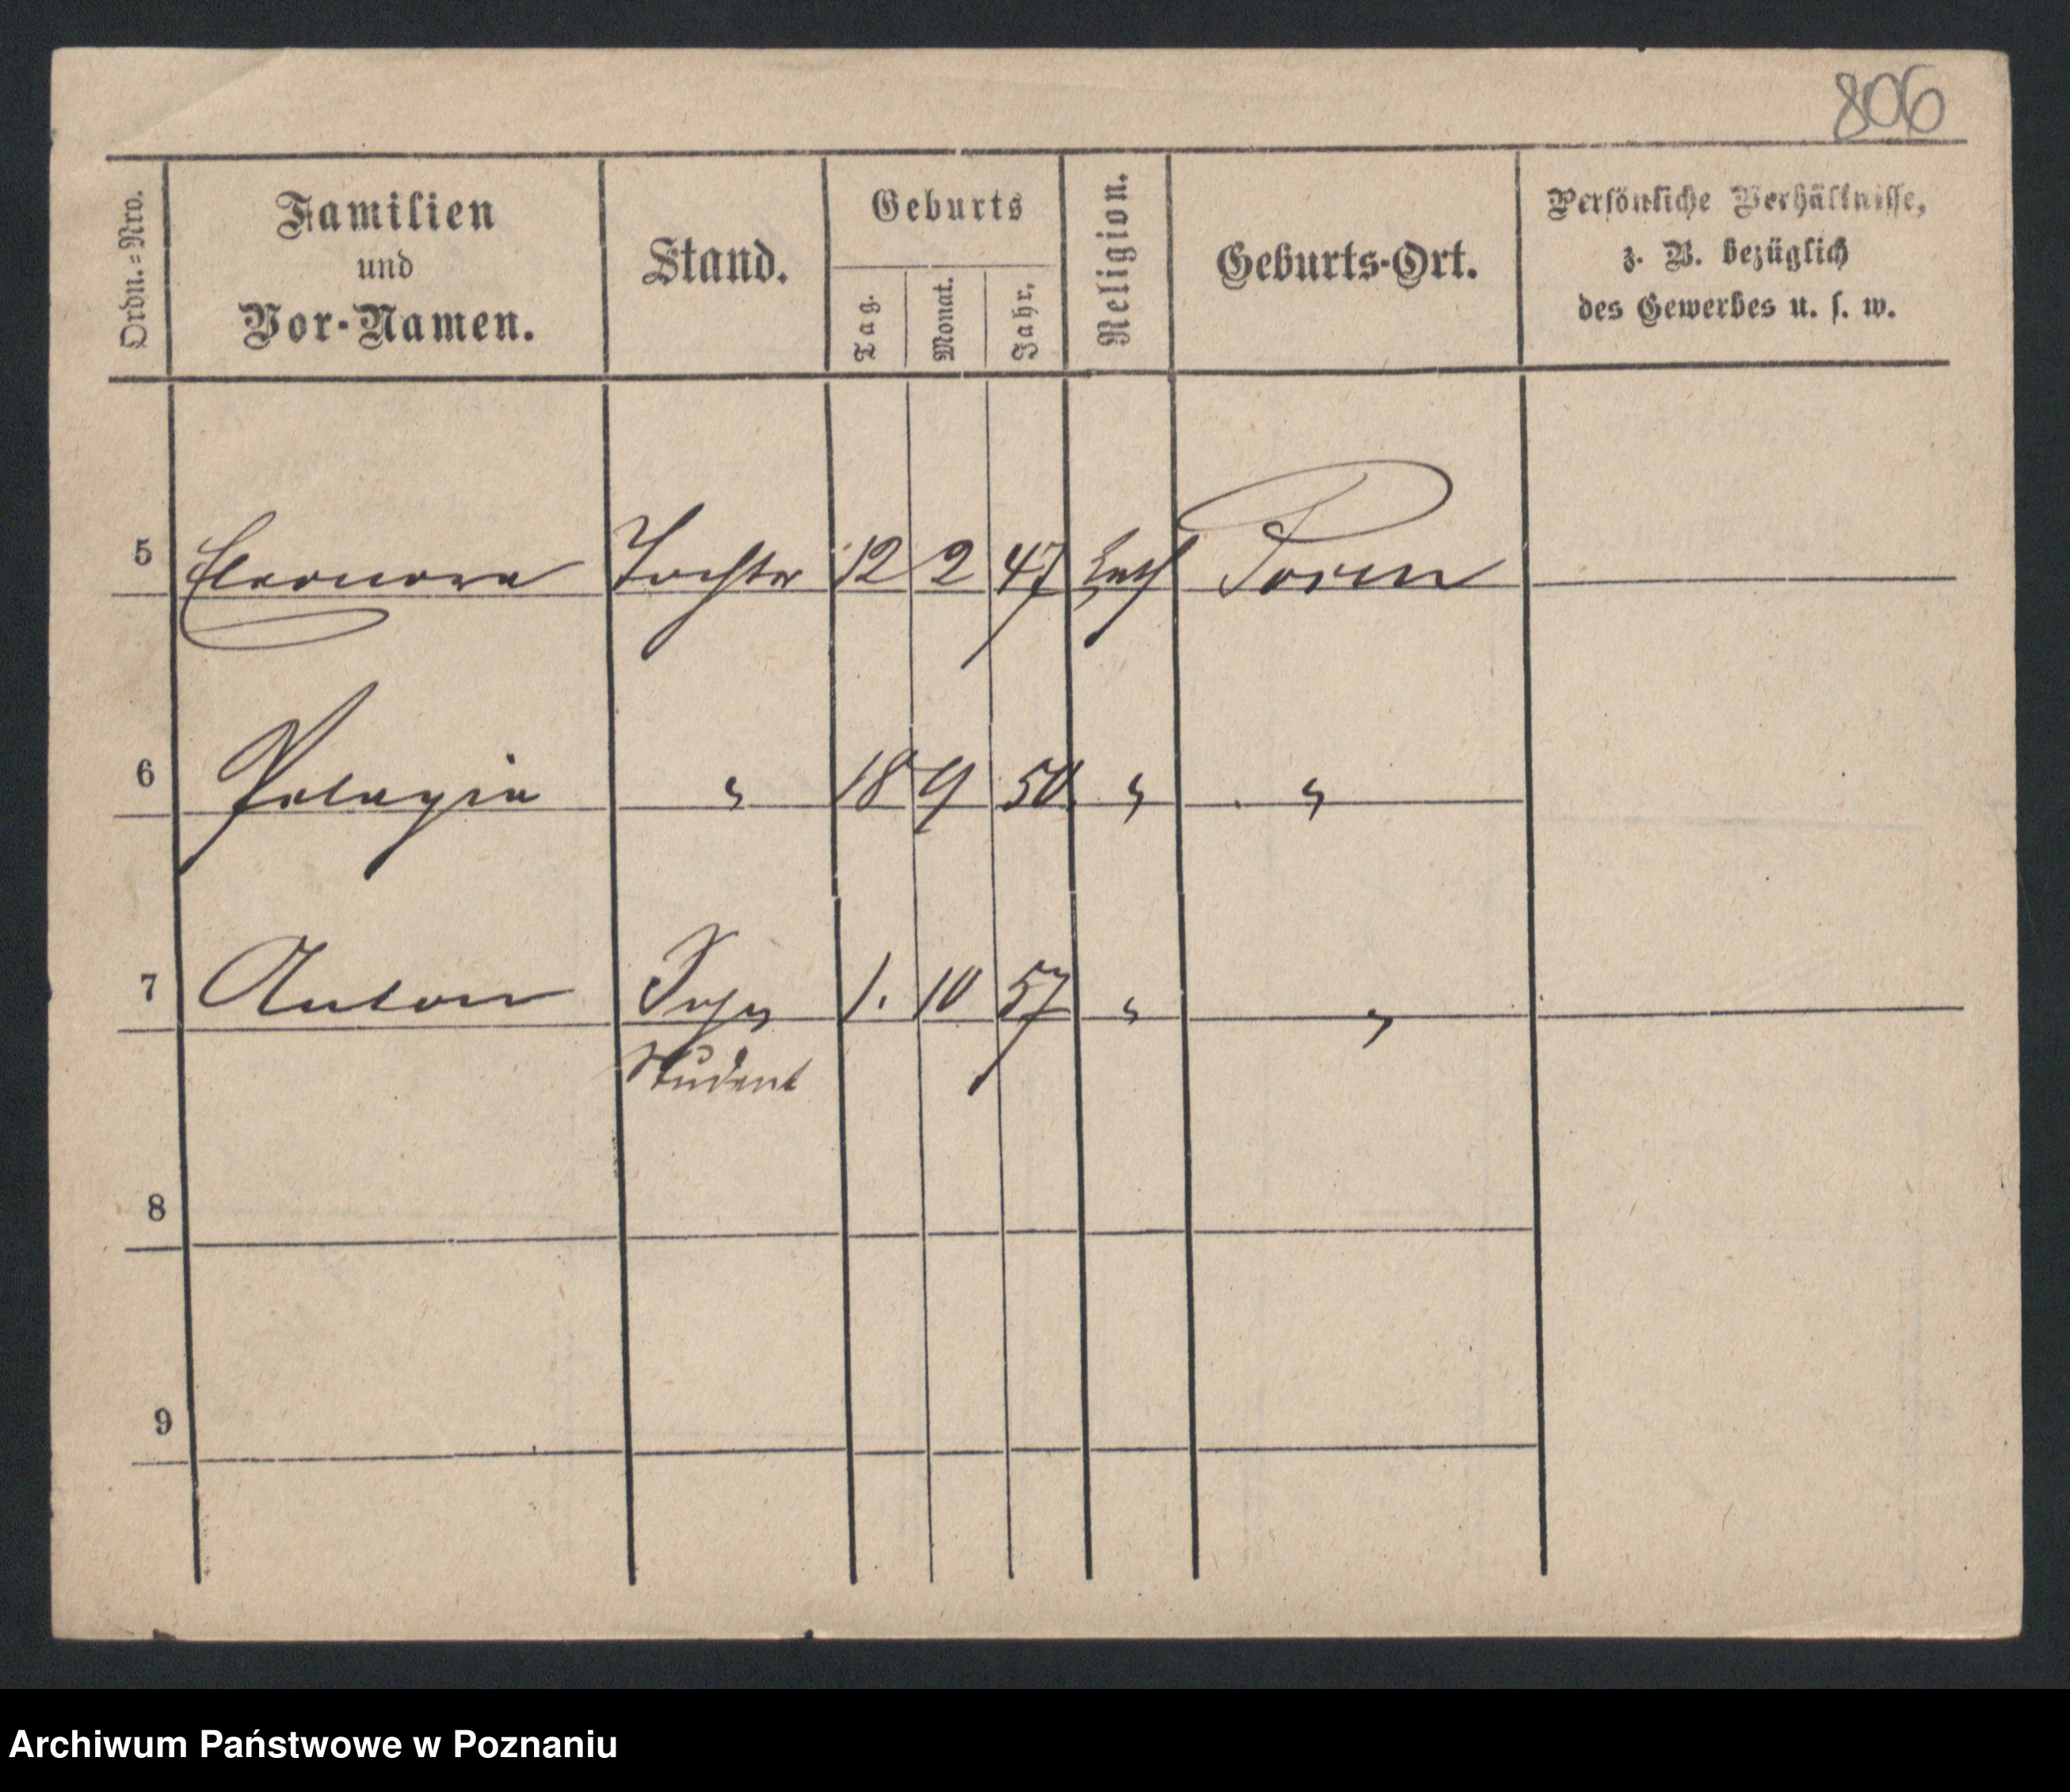 806
Ordn.-Nro.
Familien
und
Vor-Namen.
Stand.
Geburts
Tag.
Monat.
Jahr.
Religion.
Geburts-Ort.
Persönliche Verhältnisse,
z. B. bezüglich
des Gewerbes u. s. w.
5 Eleonora Tochter 12 2 47 kath Posen
6 Pelagia " 18 9 50 " "
7 Anton Sohn 1. 10 57 " "
Student
8
9
Archiwum Państwowe w Poznaniu